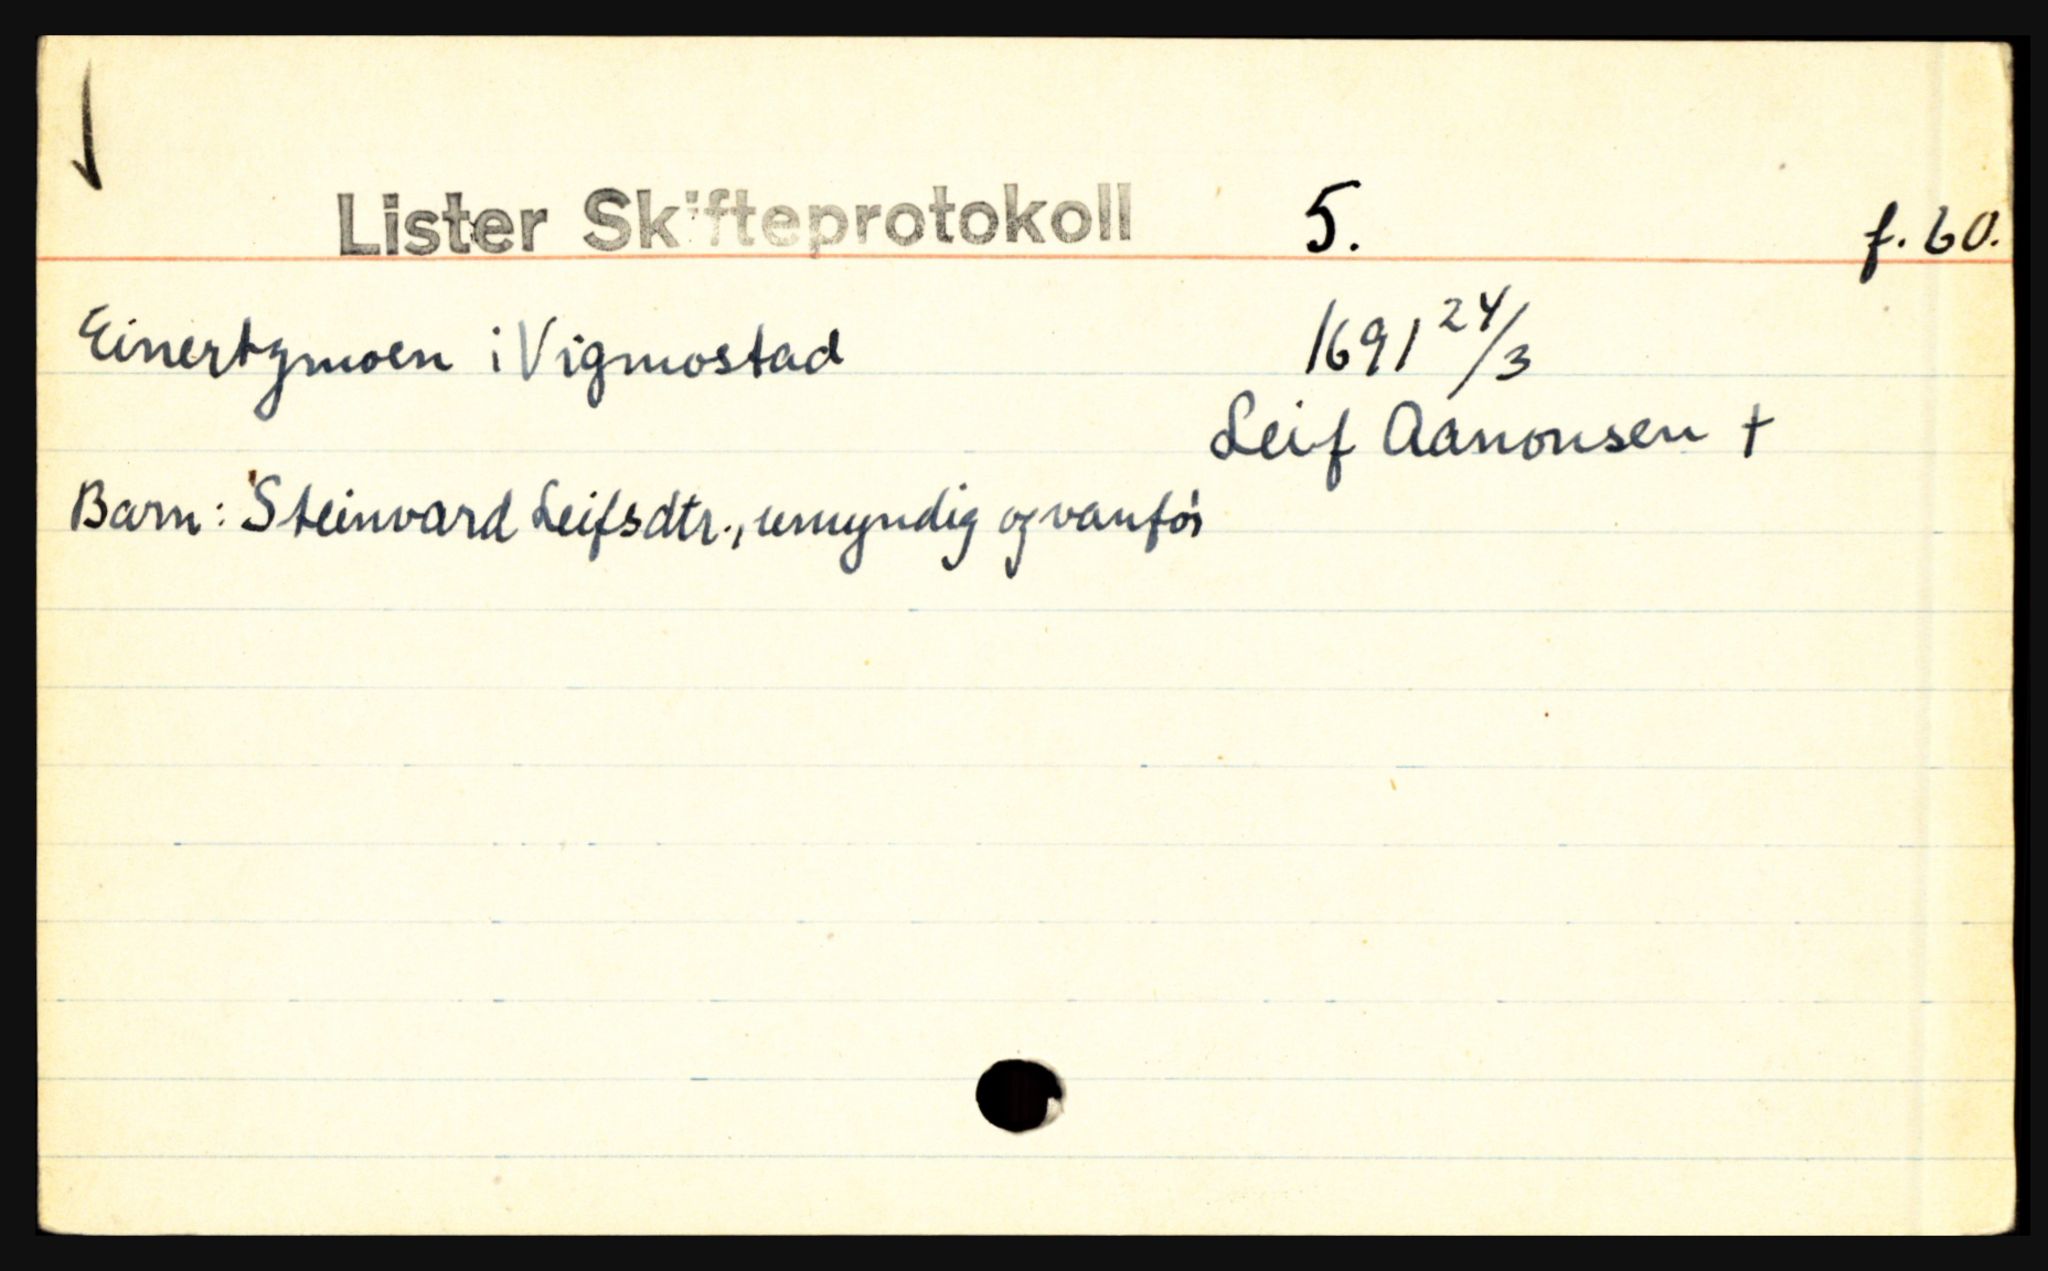 Lister Skifteprotokoll 5. f. 60.
Einertzmoen i Vigmostad 1691 24/3
Leif Aanonsen †
Barn: Steinvard Leifsdtr., umyndig og vanfør